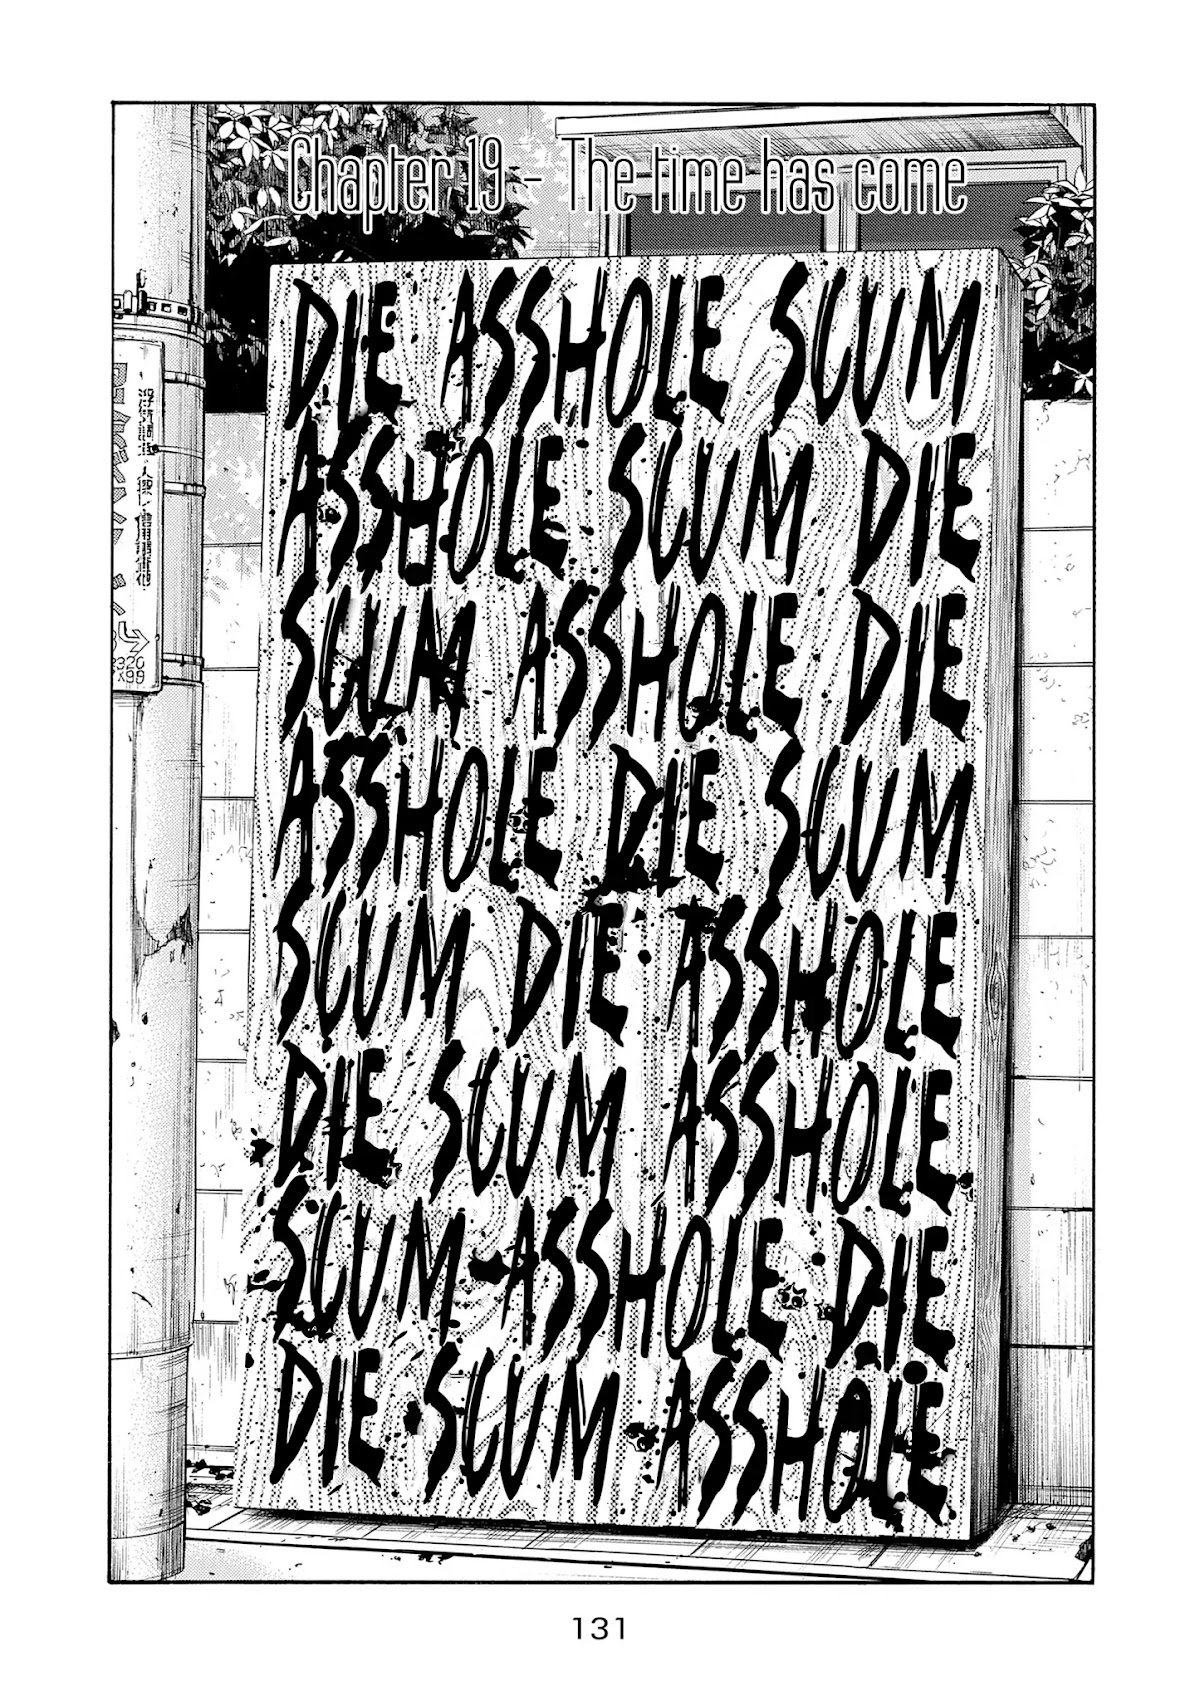 Chapter 19 - The time has come
DIE ASSHOLE SCUM
ASSHOLE SCUM DIE
SCUM ASSHOLE DIE
ASSHOLE DIE SCUM
SCUM DIE ASSHOLE
DIE SCUM ASSHOLE
SCUM ASSHOLE DIE
DIE SCUM ASSHOLE
131